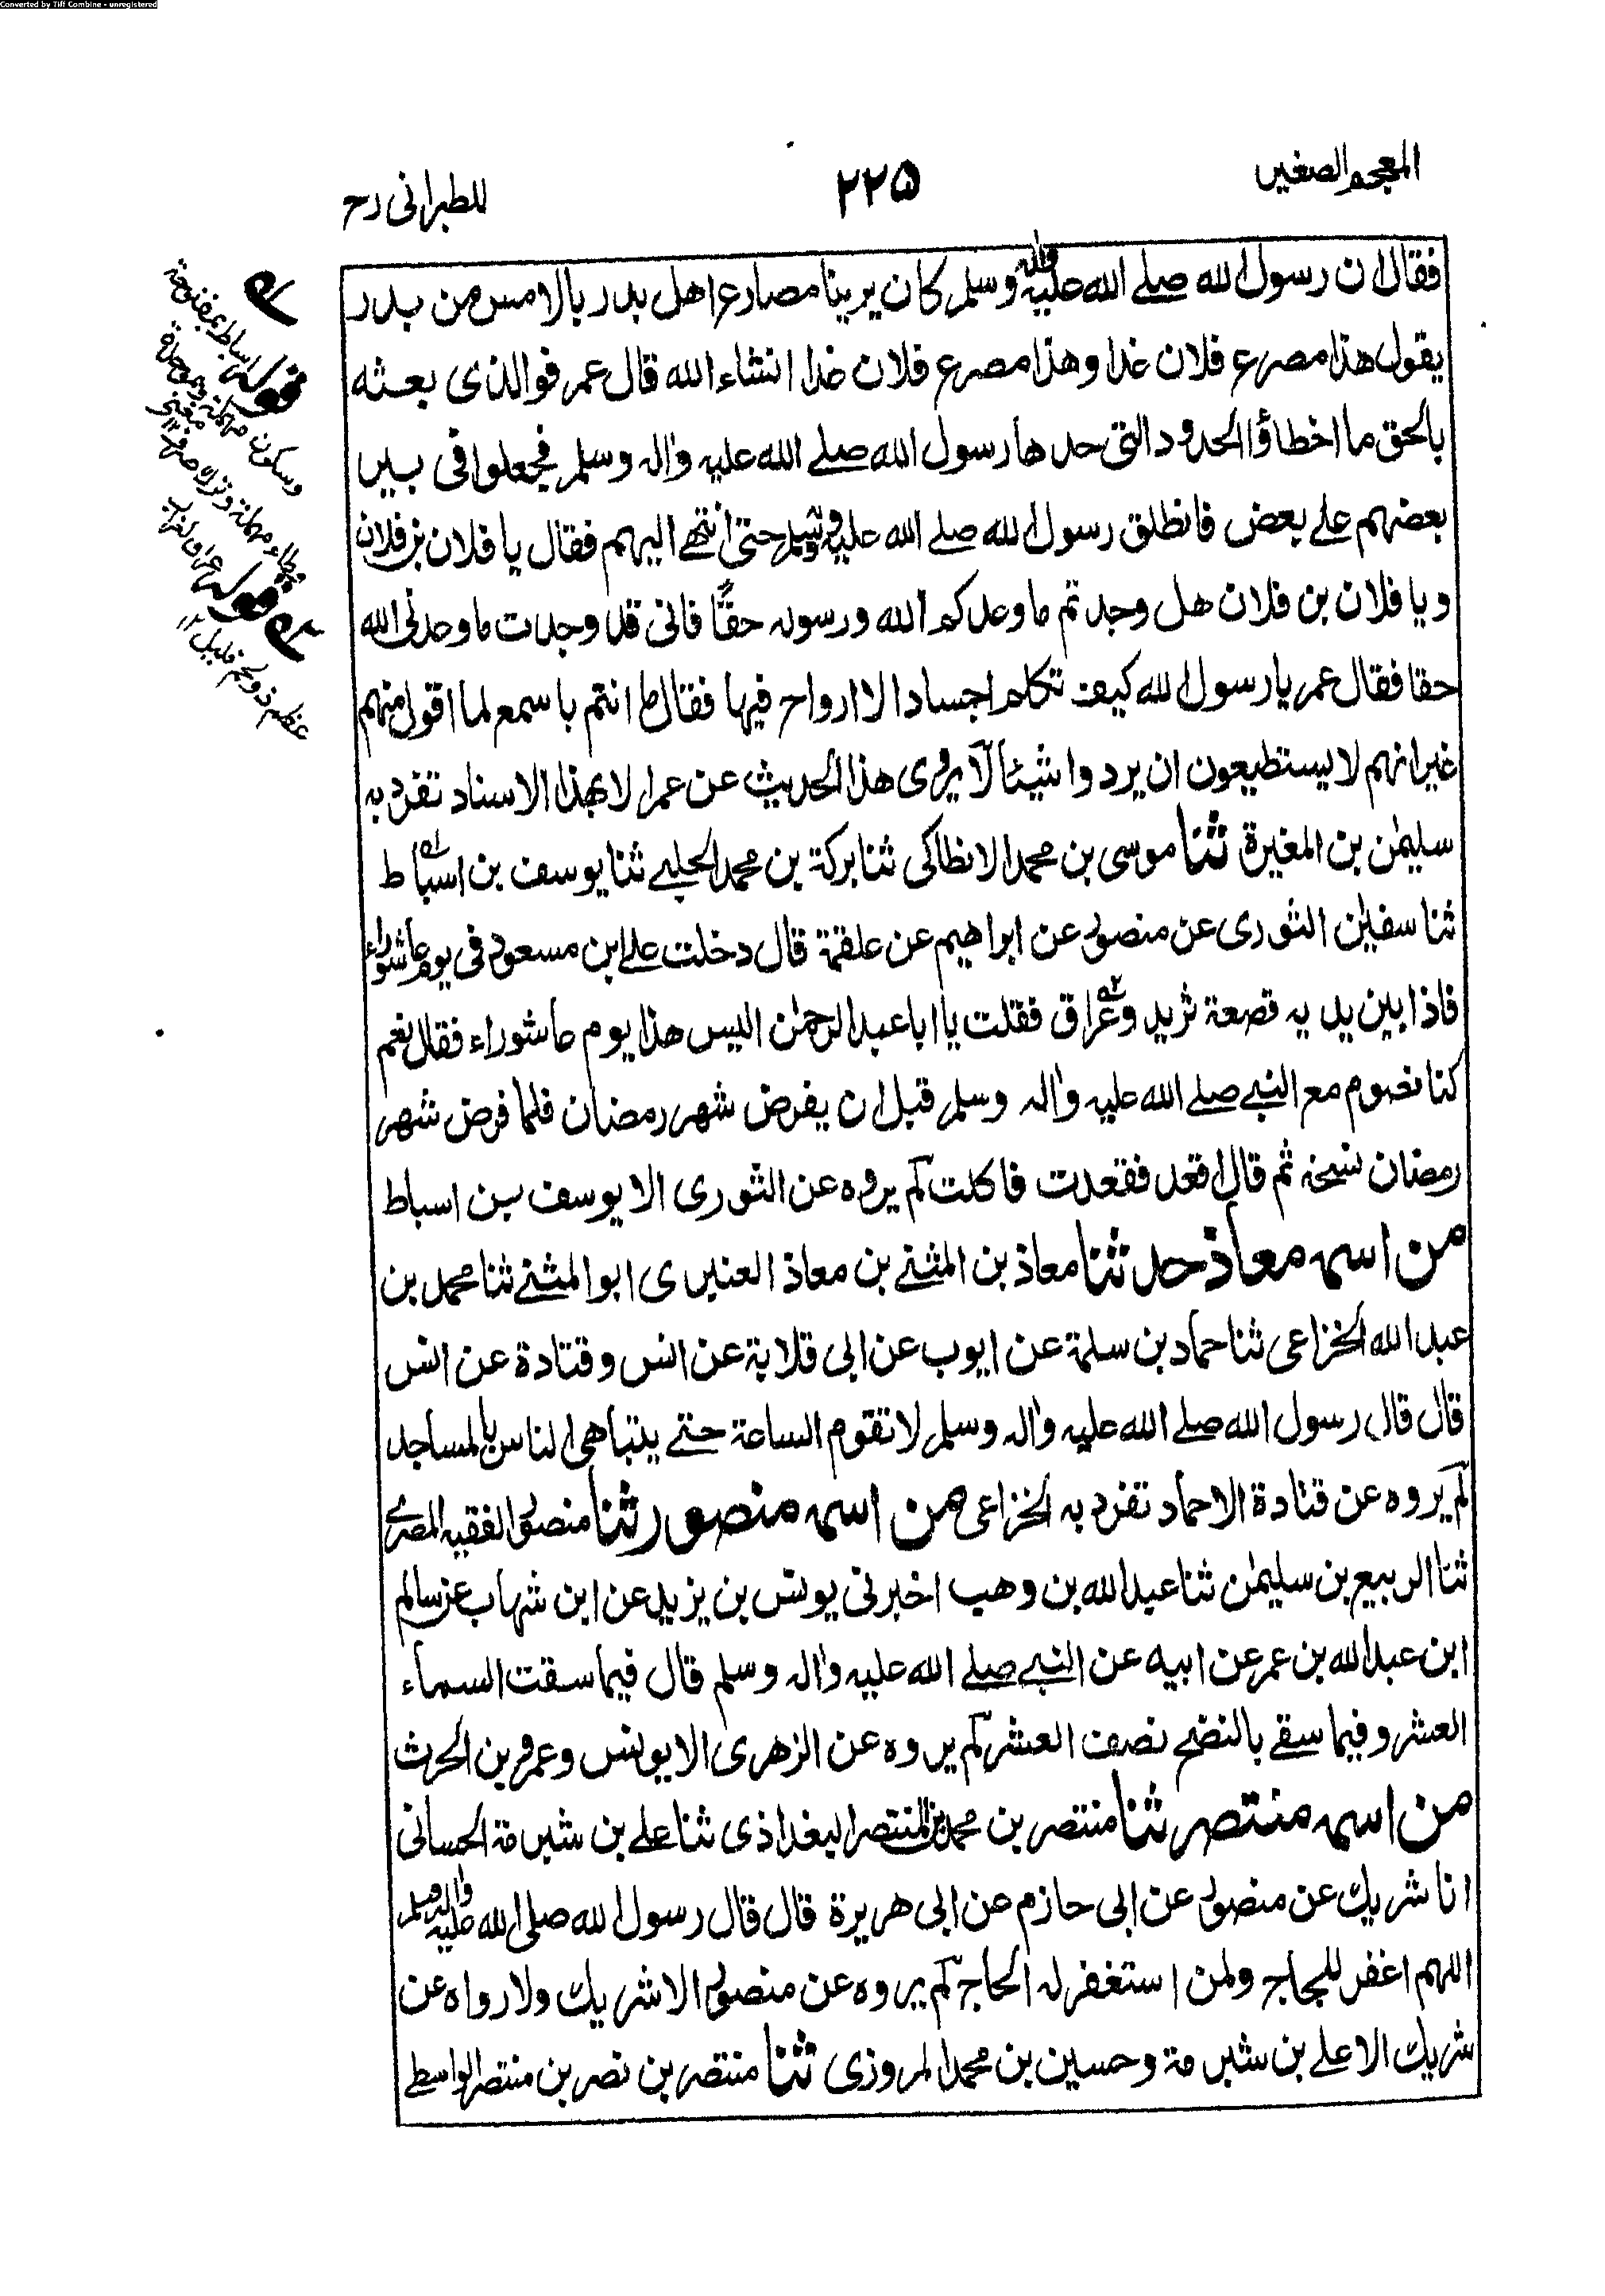 Converted by Tiff Combine - unregistered
المعجم الصغير
٢٢٥
للطبرانى رح
فقال ان رسول الله صلے الله عليه واٰله وسلم كان يرينا مصارع اهل بدر بالامس من بدر
يقول هذا مصرع فلان غدا وهذا مصرع فلان غدا انشاء الله قال عمر فوالذى بعثه
بالحق ما اخطاؤا الحدود التى حدها رسول الله صلے الله عليه واٰله وسلم فجعلوا فى بير
بعضهم علے بعض فانطلق رسول الله صلے الله عليه وسلم حتى انتهے اليهم فقال يا فلان بن فلان
ويا فلان بن فلان هل وجدتم ما وعدكم الله ورسوله حقًّا فانى قد وجدت ما وعدنى الله
حقا فقال عمر يا رسول الله كيف تكلم اجسادا لا ارواح فيها فقال ما انتم باسمع لما اقول منهم
غير انهم لا يستطيعون ان يردوا شيئا لا يروى هذا الحديث عن عمر الا بهذا الاسناد تفرد به
سليمٰن بن المغيرة ثنا موسى بن محمد الانطاكى ثنا بركة بن محمد الحلبے ثنا يوسف بن اسباط
ثنا سفيٰن الثورى عن منصور عن ابراهيم عن علقمة قال دخلت علے ابن مسعود فى يوم عاشوراء
فاذا بين يديه قصعة ثريد وعراق فقلت يا ابا عبد الرحمٰن اليس هذا يوم عاشوراء فقال نعم
كنا نصوم مع النبے صلے الله عليه واٰله وسلم قبل ان يفرض شهر رمضان فلما فرض شهر
رمضان نسخه ثم قال اقعد فقعدت فاكلت لم يروه عن الثورى الا يوسف بن اسباط
من اسمه معاذ حدثنا معاذ بن المثنے بن معاذ العنبرى ابو المثنے ثنا محمد بن
عبد الله الخزاعى ثنا حماد بن سلمة عن ايوب عن ابى قلابة عن انس وقتادة عن انس
قال قال رسول الله صلے الله عليه واٰله وسلم لا تقوم الساعة حتے يتباهى الناس بالمساجد
لم يروه عن قتادة الا حماد تفرد به الخزاعى من اسمه منصور ثنا منصور الفقيه المصرى
ثنا الربيع بن سليمٰن ثنا عبد الله بن وهب اخبرنى يونس بن يزيد عن ابن شهاب عن سالم
ابن عبد الله بن عمر عن ابيه عن النبے صلے الله عليه واٰله وسلم قال فيما سقت السماء
العشر وفيما سقے بالنضح نصف العشر لم يروه عن الزهرى الا يونس وعمرو بن الحرث
من اسمه منتصر ثنا منتصر بن محمد بن المنتصر البغداذى ثنا علے بن شبرمة الحسانى
انا شريك عن منصور عن ابى حازم عن ابى هريرة قال قال رسول الله صلى الله عليه واٰله وسلم
اللهم اغفر للحاج ولمن استغفر له الحاج لم يروه عن منصور الا شريك ولا رواه عن
شريك الا علے بن شبرمة وحسين بن محمد المروزى ثنا منتصر بن نصر بن منتصر الواسطے
قوله اسباط بمفتوحة
وسكون مهملة وبموحدة
قوله عراق
عظم ذو لحم قليل ١٢